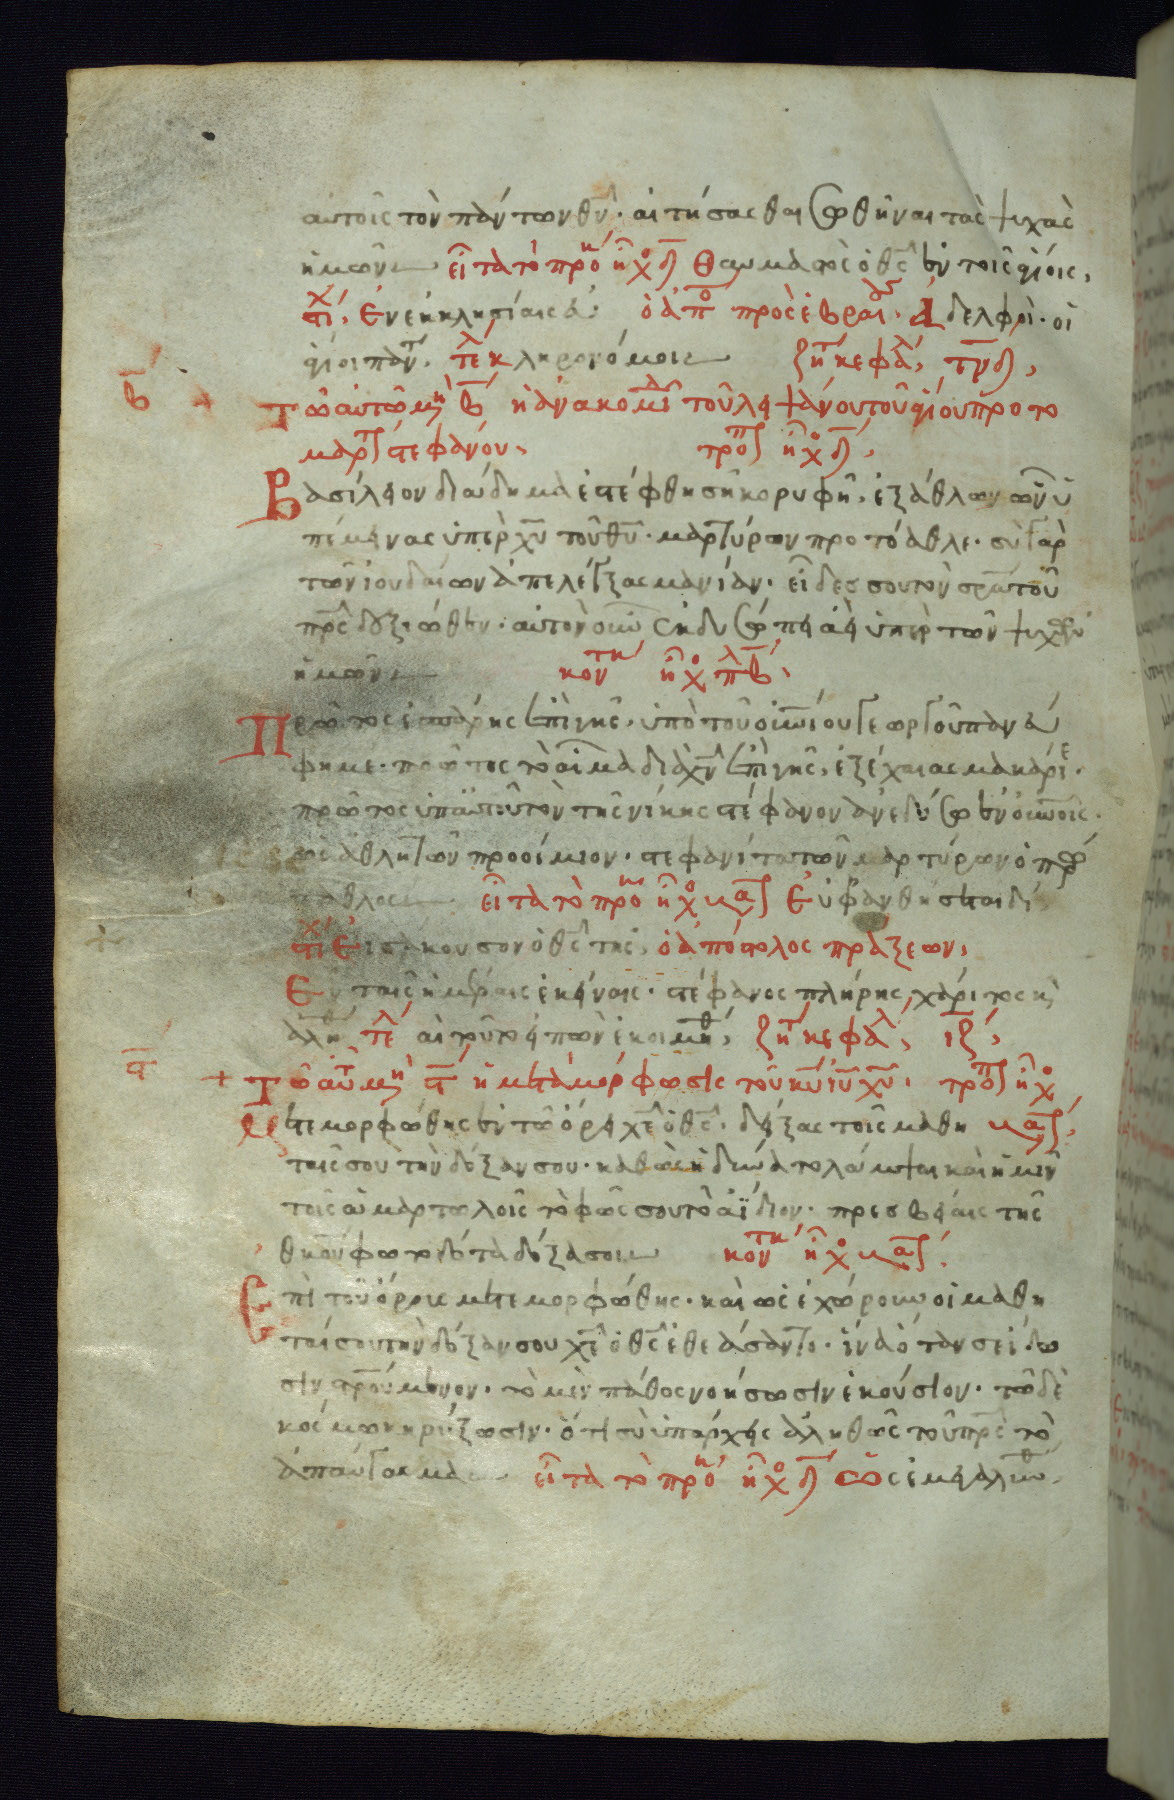 αυτοῖς τὸν πάντων θν̅· αἰτήσασθαι σωθῆναι τὰς ψυχὰς
ἡμῶν εἶτα τὸ προκ ἦχο δ Θαυμαστὸς ὁ θς̅ ἐν τοῖς ἁγίοις,
στίχ, Ἐν ἐκκλησίαις ὁ ἀπο πρὸς ἑβραι. Ἀδελφοὶ· οἱ
ἅγιοι παντ. τελ κληρονόμοις ζητ κεφαλ, τγδ,
β Τῶ αὐτῶ μη β ἡ ἀνακομιδ τοῦ λειψάνου τοῦ ἁγίου πρωτο
μαρτ στεφάνου, τροπ ἦχο δ,
Βασίλειον διάδημα ἐστέφθη σῆ κορυφῆ, ἐξ ἄθλων ὧν ὑ
πέμεινας ὑπὲρ χυ̅ τοῦ θυ̅· μαρτύρων πρωτόαθλε· σὺ γὰρ
τῶν ἰουδαίων ἀπελέγξας μανίαν· εἶδες σου τὸν σρα τοῦ
πρς̅ δεξιόθεν· αὐτὸν οὖν ἐκδυσώπει ἀεὶ ὑπὲρ τῶν ψυχῶν
ἡμῶν κοντκ ἦχο πλ β,
Πρῶτος ἐσπάρης ἐπὶ γῆς, ὑπὸ τοῦ οὐνίου γεωργοῦ πανεύ
φημε· πρῶτος τὸ αἷμα διὰ χν̅ ἐπὶ γῆς, ἐξέχεας μακάριε·
πρῶτος ὑπ' αὐτοῦ τὸν τῆς νίκης στέφανον ἀνεδύσω ἐν οὐνοῖς·
ὡς ἀθλητῶν προοίμιον· στεφανῖτα τῶν μαρτύρων ὁ πρω
τόαθλος εἶτα τὸ προκ ἦχο α Εὐφρανθήσεται δί
στίχ Εἰσάκουσον ὁ θς̅ τῆς, ὁ ἀπόστολος πράξεων,
Ἐν ταῖς ἡμέραις ἐκείναις· στέφανος πλήρης χάριτος κ
ἀληθ τελ αι τοῦτο εἰπὼν ἐκοιμήθ, ζητ κεφαλ, ιζ,
Τῶ αὐτ μη ἡ μεταμόρφωσις τοῦ κυ̅ ιυ̅ χυ̅· τροπ ἦχο
Μετεμορφώθης ἐν τῶ ὄρει χε̅ ὁ θς̅· δείξας τοῖς μαθη
ταῖς σου τὴν δόξαν σου· καθὼς ἠδύναντο λάμψαι καὶ ἡμῖν
τοῖς ἁμαρτωλοῖς τὸ φῶς σου τὸ ἀΐδιον· πρεσβείαις τῆς
θκου φωτοδότα δόξα σοι κοντκ ἦχο
Ἐπὶ τοῦ ὄρους μετεμορφώθης· καὶ ὡς ἐχώρουν οἱ μαθη
ταί σου τὴν δόξαν σου χε̅ ὁ θς̅ ἐθεάσαντο· ἵνα ὅταν σε ἴδω
σιν στρούμενον· τὸ μὲν πάθος νοήσωσιν ἑκούσιον· τῶ δὲ
κόσμω κηρύξωσιν· ὅτι σὺ ὑπάρχεις ἀληθῶς τοῦ πρς̅ τὸ
ἀπαύγασμα εἶτα τὸ προκ ἦχο δ Ὡς ἐμεγαλύνθ